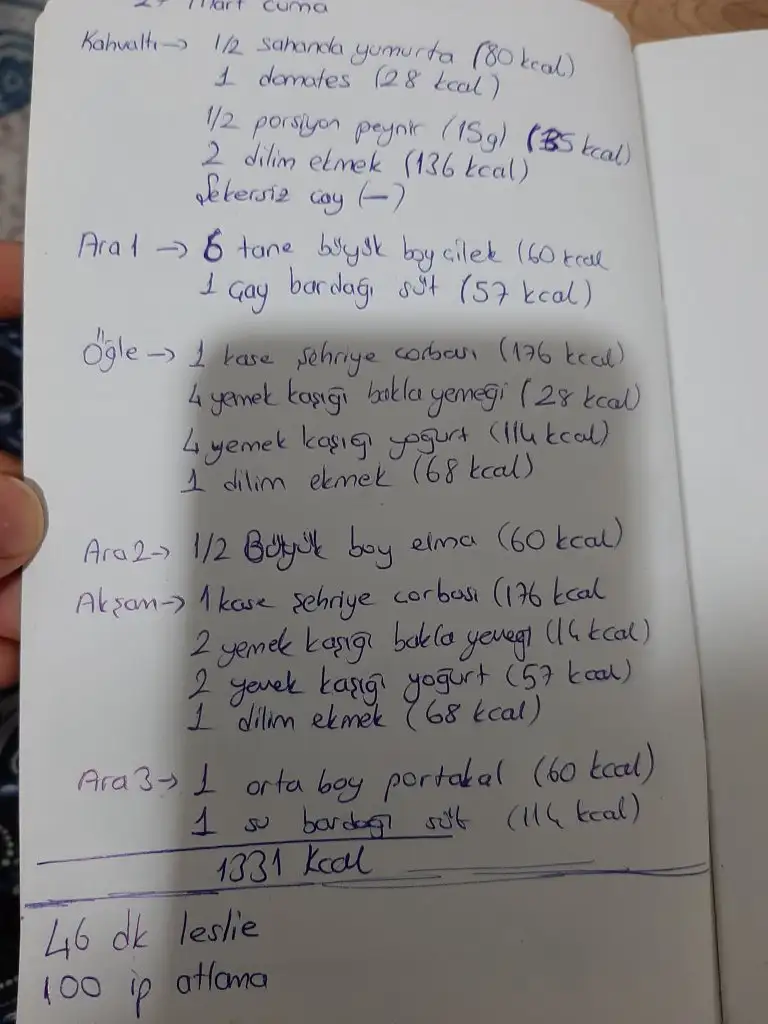 Mart Cuma
Kahvaltı → 1/2 sahanda yumurta (80 kcal)
1 domates (28 kcal)
1/2 porsiyon peynir (15g) (35 kcal)
2 dilim ekmek (136 kcal)
Şekersiz çay (—)
Ara 1 → 6 tane büyük boy çilek (60 kcal
1 çay bardağı süt (57 kcal)
Öğle → 1 kase şehriye corbası (176 kcal)
4 yemek kaşığı bakla yemeği (28 kcal)
4 yemek kaşığı yoğurt (114 kcal)
1 dilim ekmek (68 kcal)
Ara 2 → 1/2 Büyük boy elma (60 kcal)
Akşam → 1 kase şehriye corbası (176 kcal
2 yemek kaşığı bakla yemegi (14 kcal)
2 yemek kaşığı yoğurt (57 kcal)
1 dilim ekmek (68 kcal)
Ara 3 → 1 orta boy portakal (60 kcal)
1 su bardağı süt (114 kcal)
1331 kcal
46 dk leslie
100 ip atlama